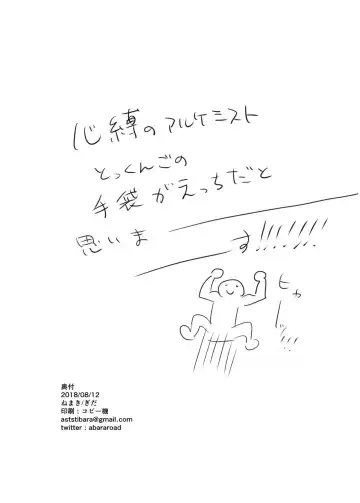 心縛のアルケミスト
とっくんごの
手袋がえっちだと
思いま
す!!!!!!
ヒャーッ!!!
奥付
2018/08/12
ねまき/ぎだ
印刷：コピー機
aststibara@gmail.com
twitter : abararoad